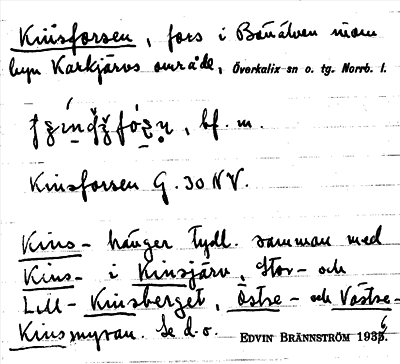 Kinsforsen, fors i Bänälven inom
byn Karkjärvs område, Överkalix sn o. tg. Norrb. l.
bf. m.
Kinsforsen G. 30 NV.
Kins- hänger tydl. samman med
Kins- i Kinsjärv, Stor- och
Lill-Kinsberget, Östre- och Västre-
Kinsmyran. Se d. o. EDVIN BRÄNNSTRÖM 1936.